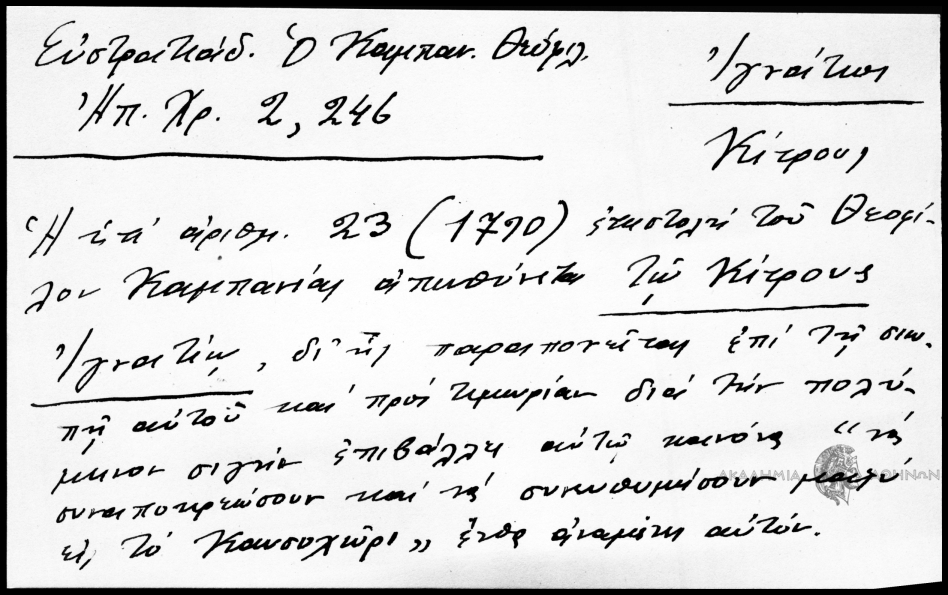 Εὐστρατιάδ. Ὁ Καμπαν. Θεόφιλ.
Ἠπ. Χρ. 2, 246
Ἰγνάτιος
Κίτρους
Ἡ ὑπ' ἀριθμ. 23 (1790) ἐπιστολὴ τοῦ Θεοφί-
λου Καμπανίας ἀπευθύνεται τῷ Κίτρους
Ἰγνατίῳ, δι' ἧς παραπονεῖται ἐπὶ τῇ σιω-
πῇ αὐτοῦ καὶ πρὸς τιμωρίαν διὰ τὴν πολύ-
μηνον σιγὴν ἐπιβάλλει αὐτῷ κανόνα "νὰ
συναποκρεώσουν καὶ νὰ συνευθυμήσουν μαζὺ
εἰς τὸ Καψοχῶρι" ἔνθα ἀναμένει αὐτόν.
ΑΚΑΔΗΜΙΑ ΑΘΗΝΩΝ